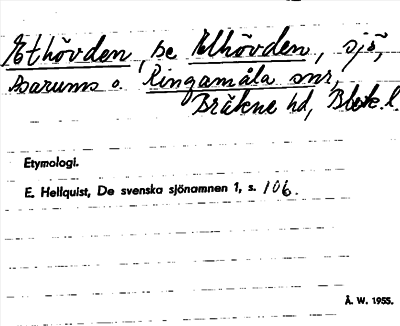 Ethövden, se Elhövden, sjö,
Asarums o. Ringamåla snr,
Bräkne hd, Blek. l.
Etymologi.
E. Hellquist, De svenska sjönamnen 1, s. 106.
Å. W. 1955.